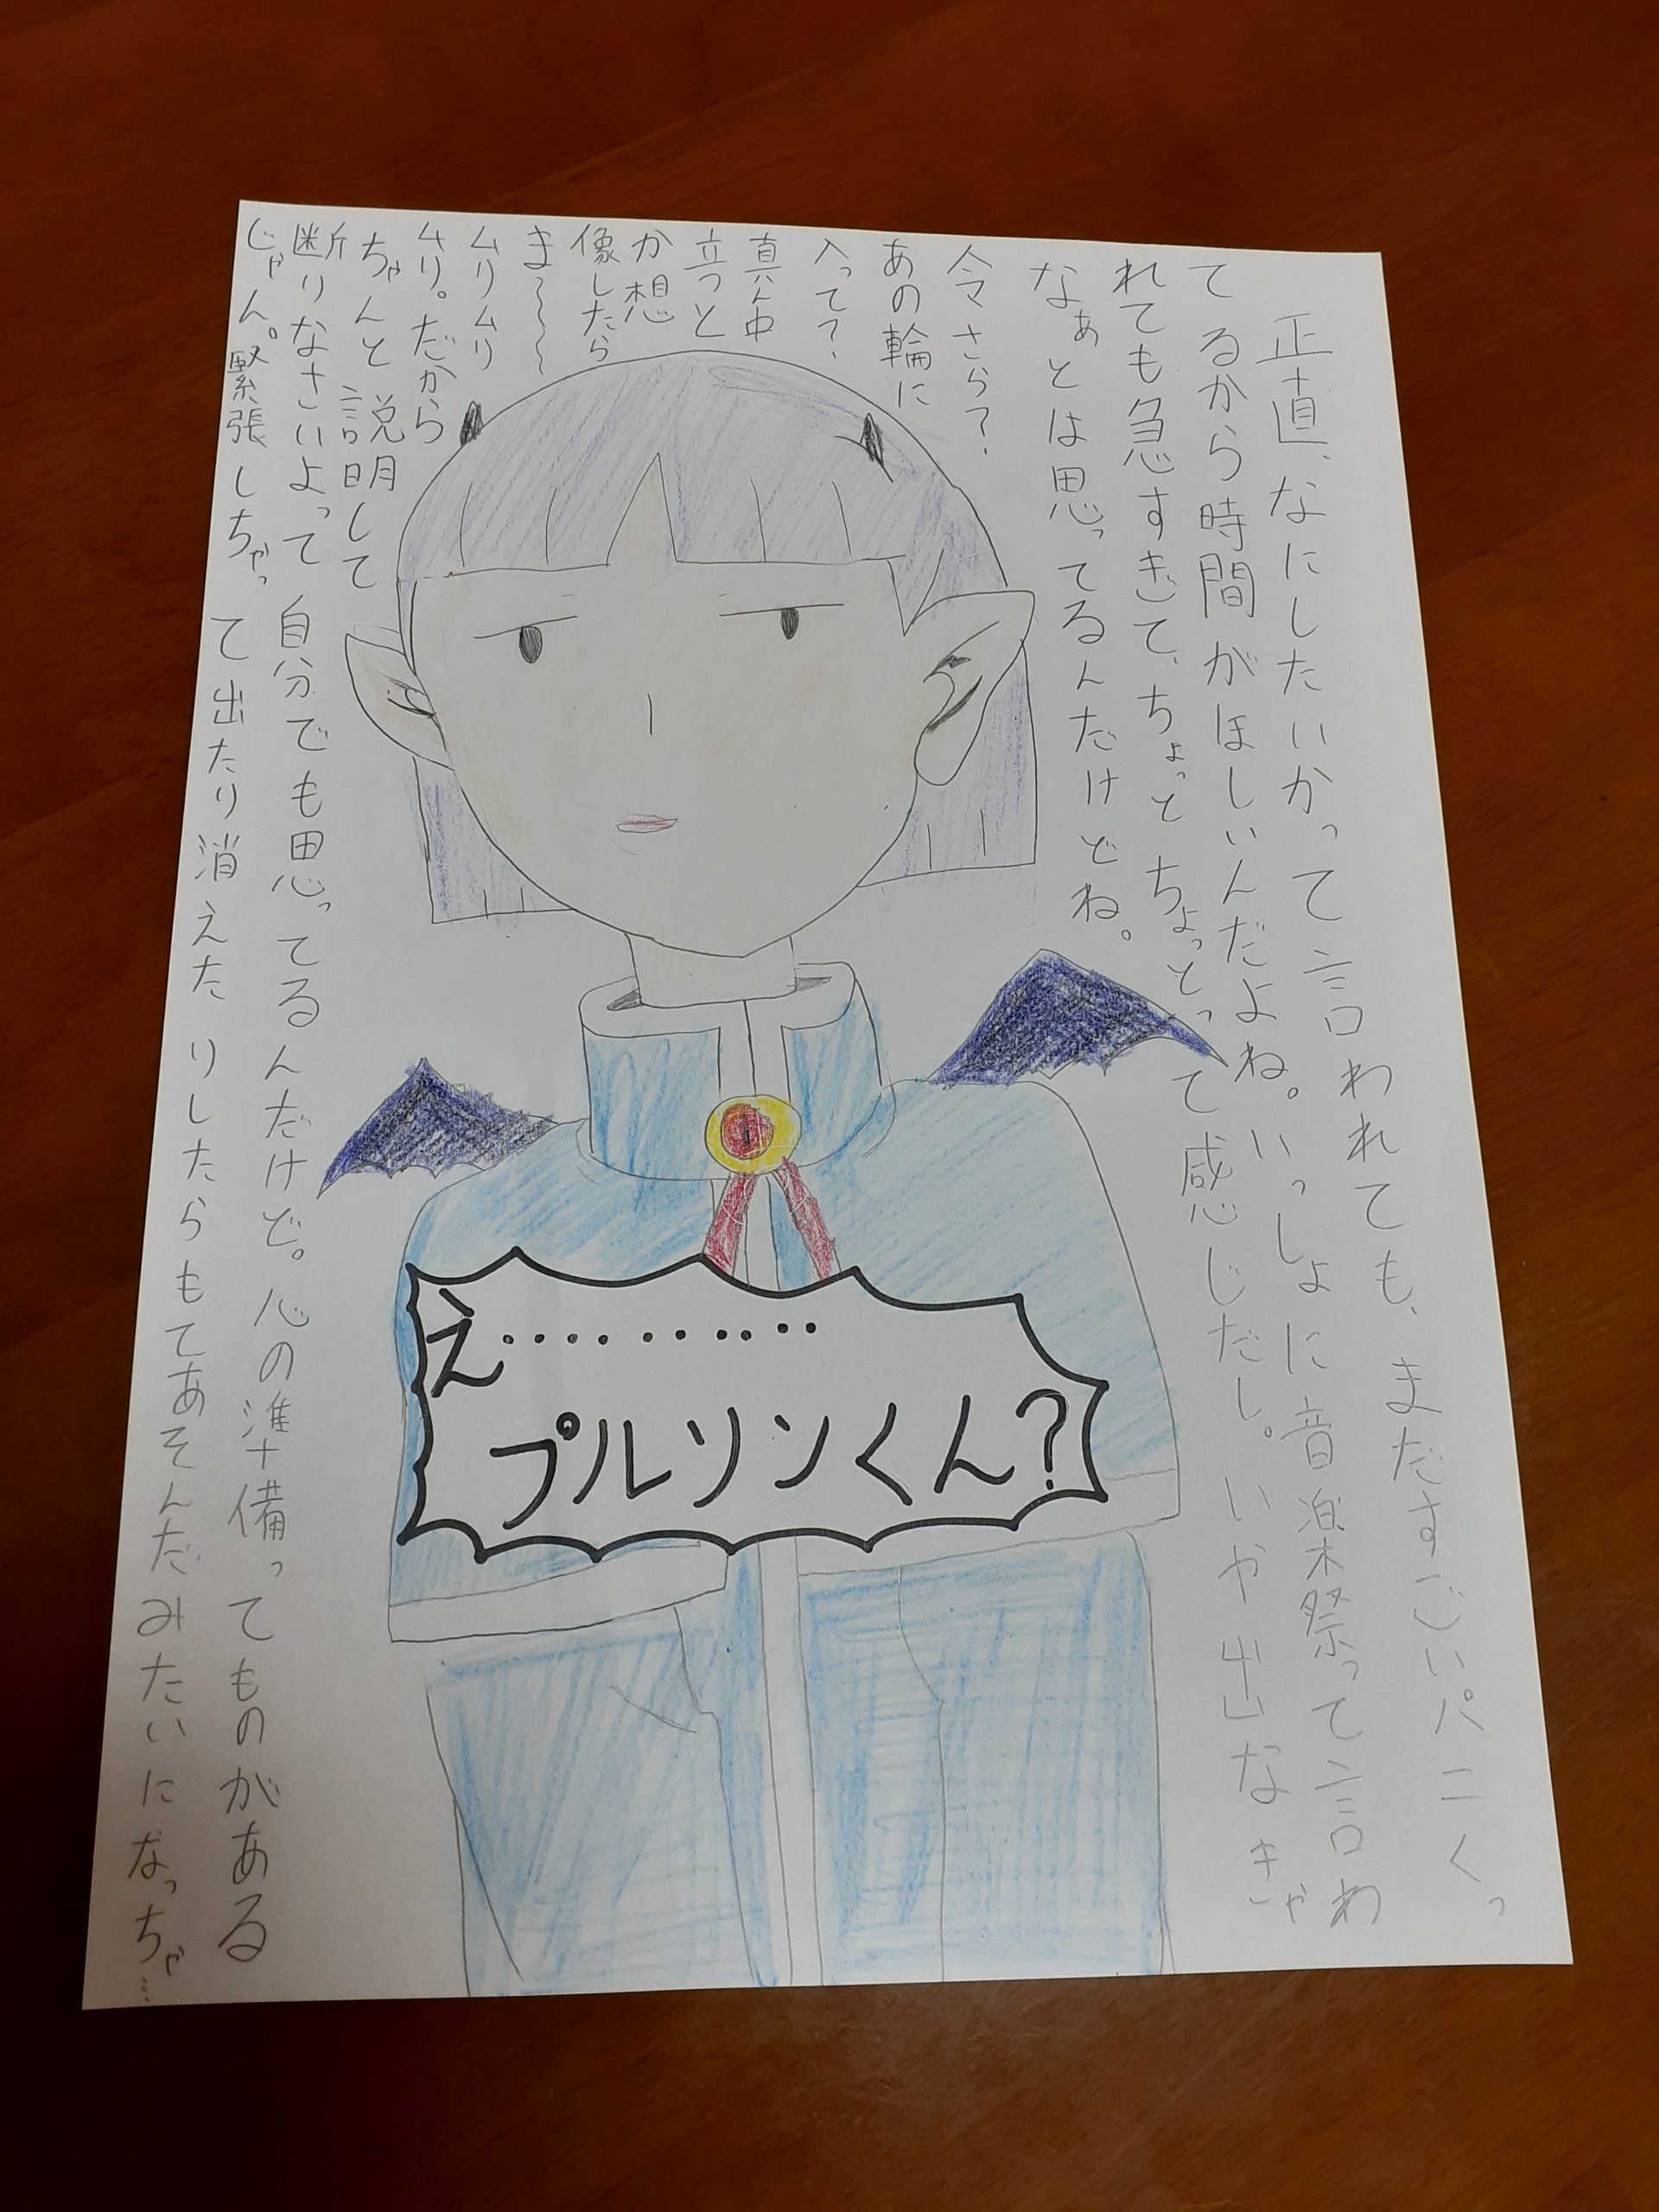 正直、なにしたいかって言われても、まだすごいパニくっ
てるから時間がほしいんだよね。いっしょに音楽祭って言わ
れても急すぎて、ちょっとちょっとって感じだし。いや出なきゃ
なぁとは思ってるんだけどね。
今さら?
あの輪に
入って?
真ん中
立つと
か想
像したら
ま〜〜〜
ムリムリ
ムリ。だから
ちゃんと説明して
断りなさいよって自分でも思ってるんだけど。心の準備ってものがある
じゃん。緊張しちゃって出たり消えたりしたらもてあそんだみたいになっちゃ…
え…………
プルソンくん?